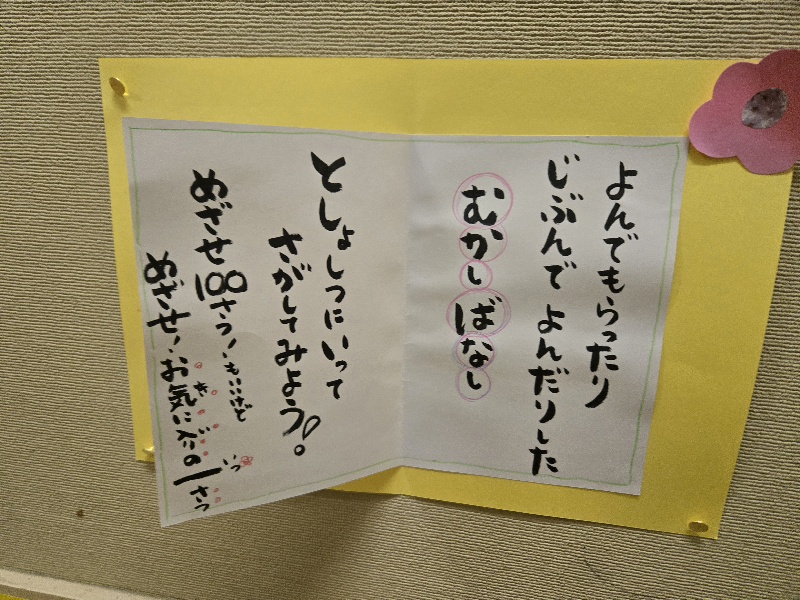 よんでもらったり
じぶんで よんだりした
むかしばなし
としょしつにいって
さがしてみよう!。
めざせ100さつ!もいいけど
めざせ!お気に入りの一さつ
き
い
いっ